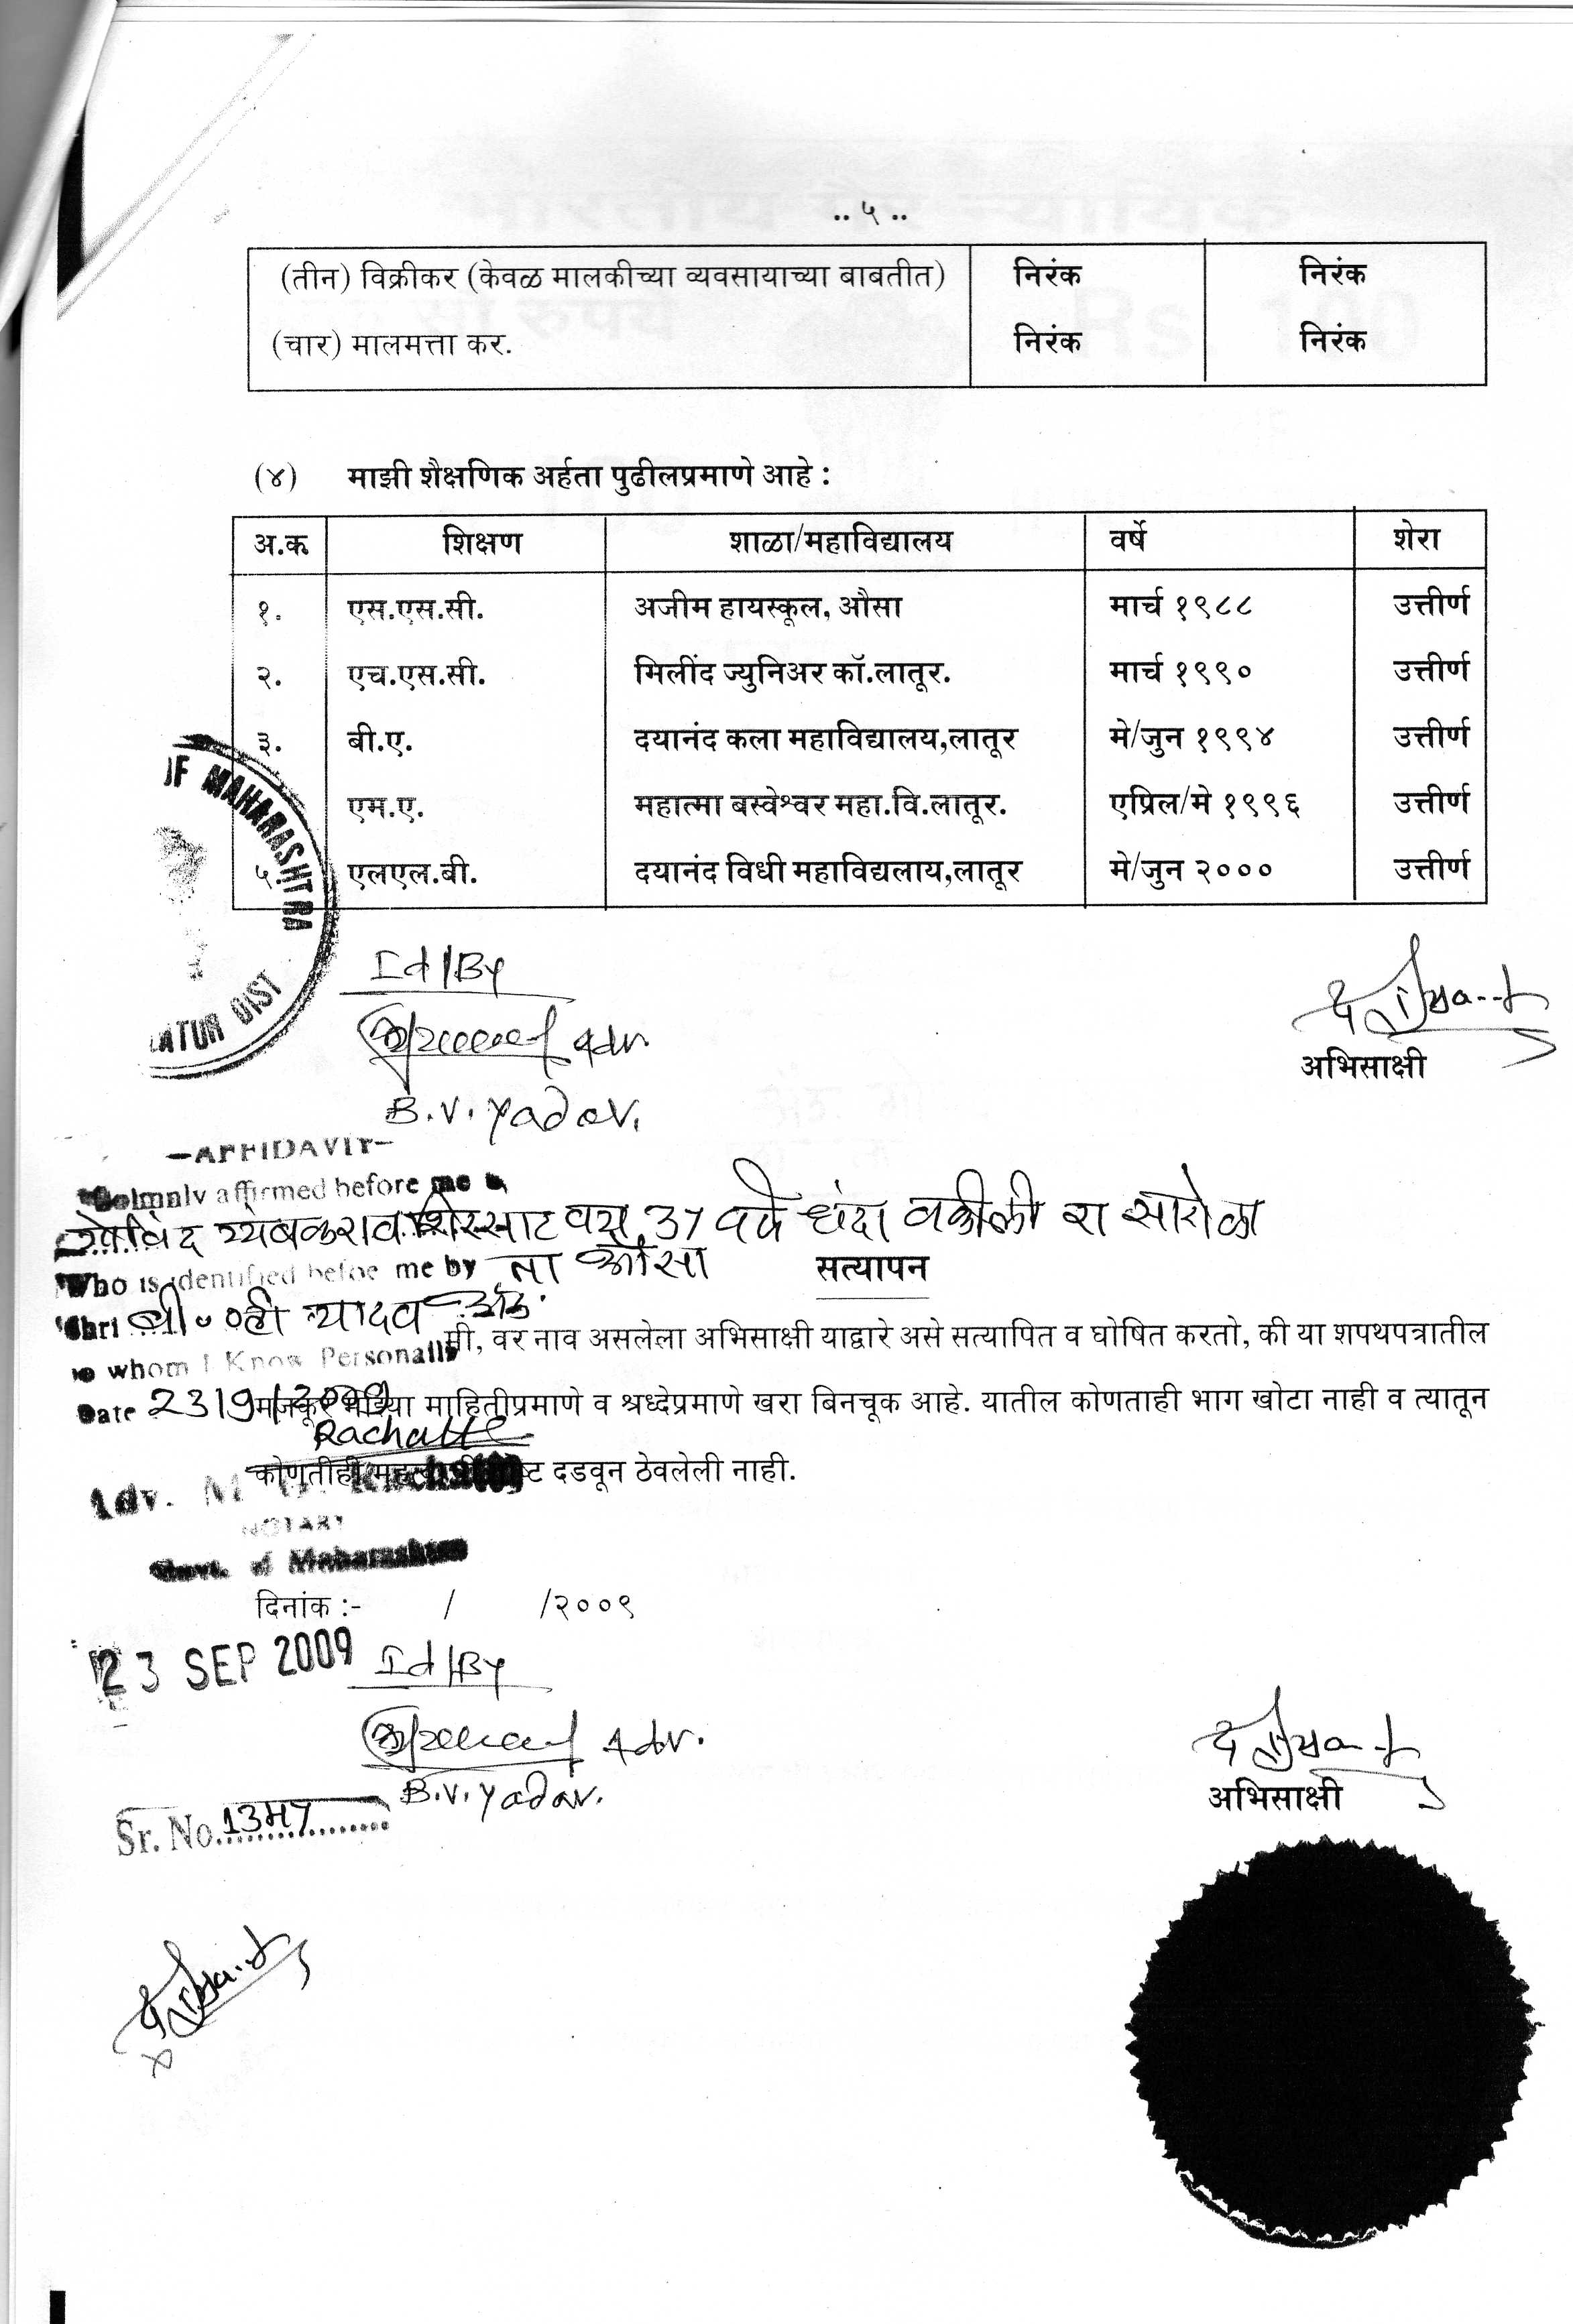 .. ५ ..
(तीन) विक्रीकर (केवळ मालकीच्या व्यवसायाच्या बाबतीत) निरंक निरंक
(चार) मालमत्ता कर. निरंक निरंक
(४) माझी शैक्षणिक अर्हता पुढीलप्रमाणे आहे :
अ.क शिक्षण शाळा/महाविद्यालय वर्षे शेरा
१. एस.एस.सी. अजीम हायस्कूल, औसा मार्च १९८८ उत्तीर्ण
२. एच.एस.सी. मिलींद ज्युनिअर कॉ.लातूर. मार्च १९९० उत्तीर्ण
३. बी.ए. दयानंद कला महाविद्यालय,लातूर मे/जुन १९९४ उत्तीर्ण
एम.ए. महात्मा बस्वेश्वर महा.वि.लातूर. एप्रिल/मे १९९६ उत्तीर्ण
५ एलएल.बी. दयानंद विधी महाविद्यलाय,लातूर मे/जुन २००० उत्तीर्ण
OF MAHARASHTRA
LATUR DIST
Id/By
Adv.
B.V. Yadav.
अभिसाक्षी
-AFFIDAVIT-
Solmnly affirmed before me
त्र्यंबकराव शिरसाट वय 37 वर्षे धंदा वकीली रा सारोळा
Who is identified befoe me by ता औसा
सत्यापन
Shri बी. व्ही यादव अॅड.
मी, वर नाव असलेला अभिसाक्षी याद्वारे असे सत्यापित व घोषित करतो, की या शपथपत्रातील
whom I Know Personally
Date 23/9/2009
मजकूर माझ्या माहितीप्रमाणे व श्रध्देप्रमाणे खरा बिनचूक आहे. यातील कोणताही भाग खोटा नाही व त्यातून
कोणतीही दडवून ठेवलेली नाही.
Adv. M
NOTARY
Govt. of Maharashtra
दिनांक :- / /२००९
23 SEP 2009
Id/By
Adv.
B.V. Yadav.
अभिसाक्षी
Sr. No.